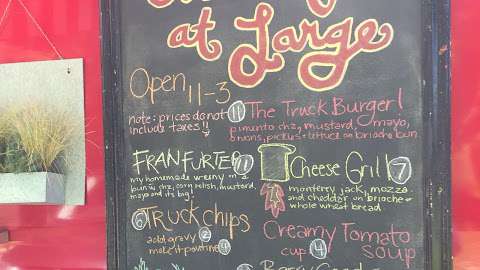 at Large
Open 11-3
note: prices do not
include taxes!!
11 The Truck Burger!
pimunto chz, mustard, mayo,
onions, pickles + lettuce on brioche bun
FRANFURTER 11
my homemade weeny in a
bun w chz, corn relish, mustard,
mayo and its big!
Cheese Grill 7
monterry jack, mozza
and cheddar on brioche or
whole wheat bread
6 TRUCK chips
add gravy 2
make it poutine 4
Creamy Tomato
cup 4 SOUP